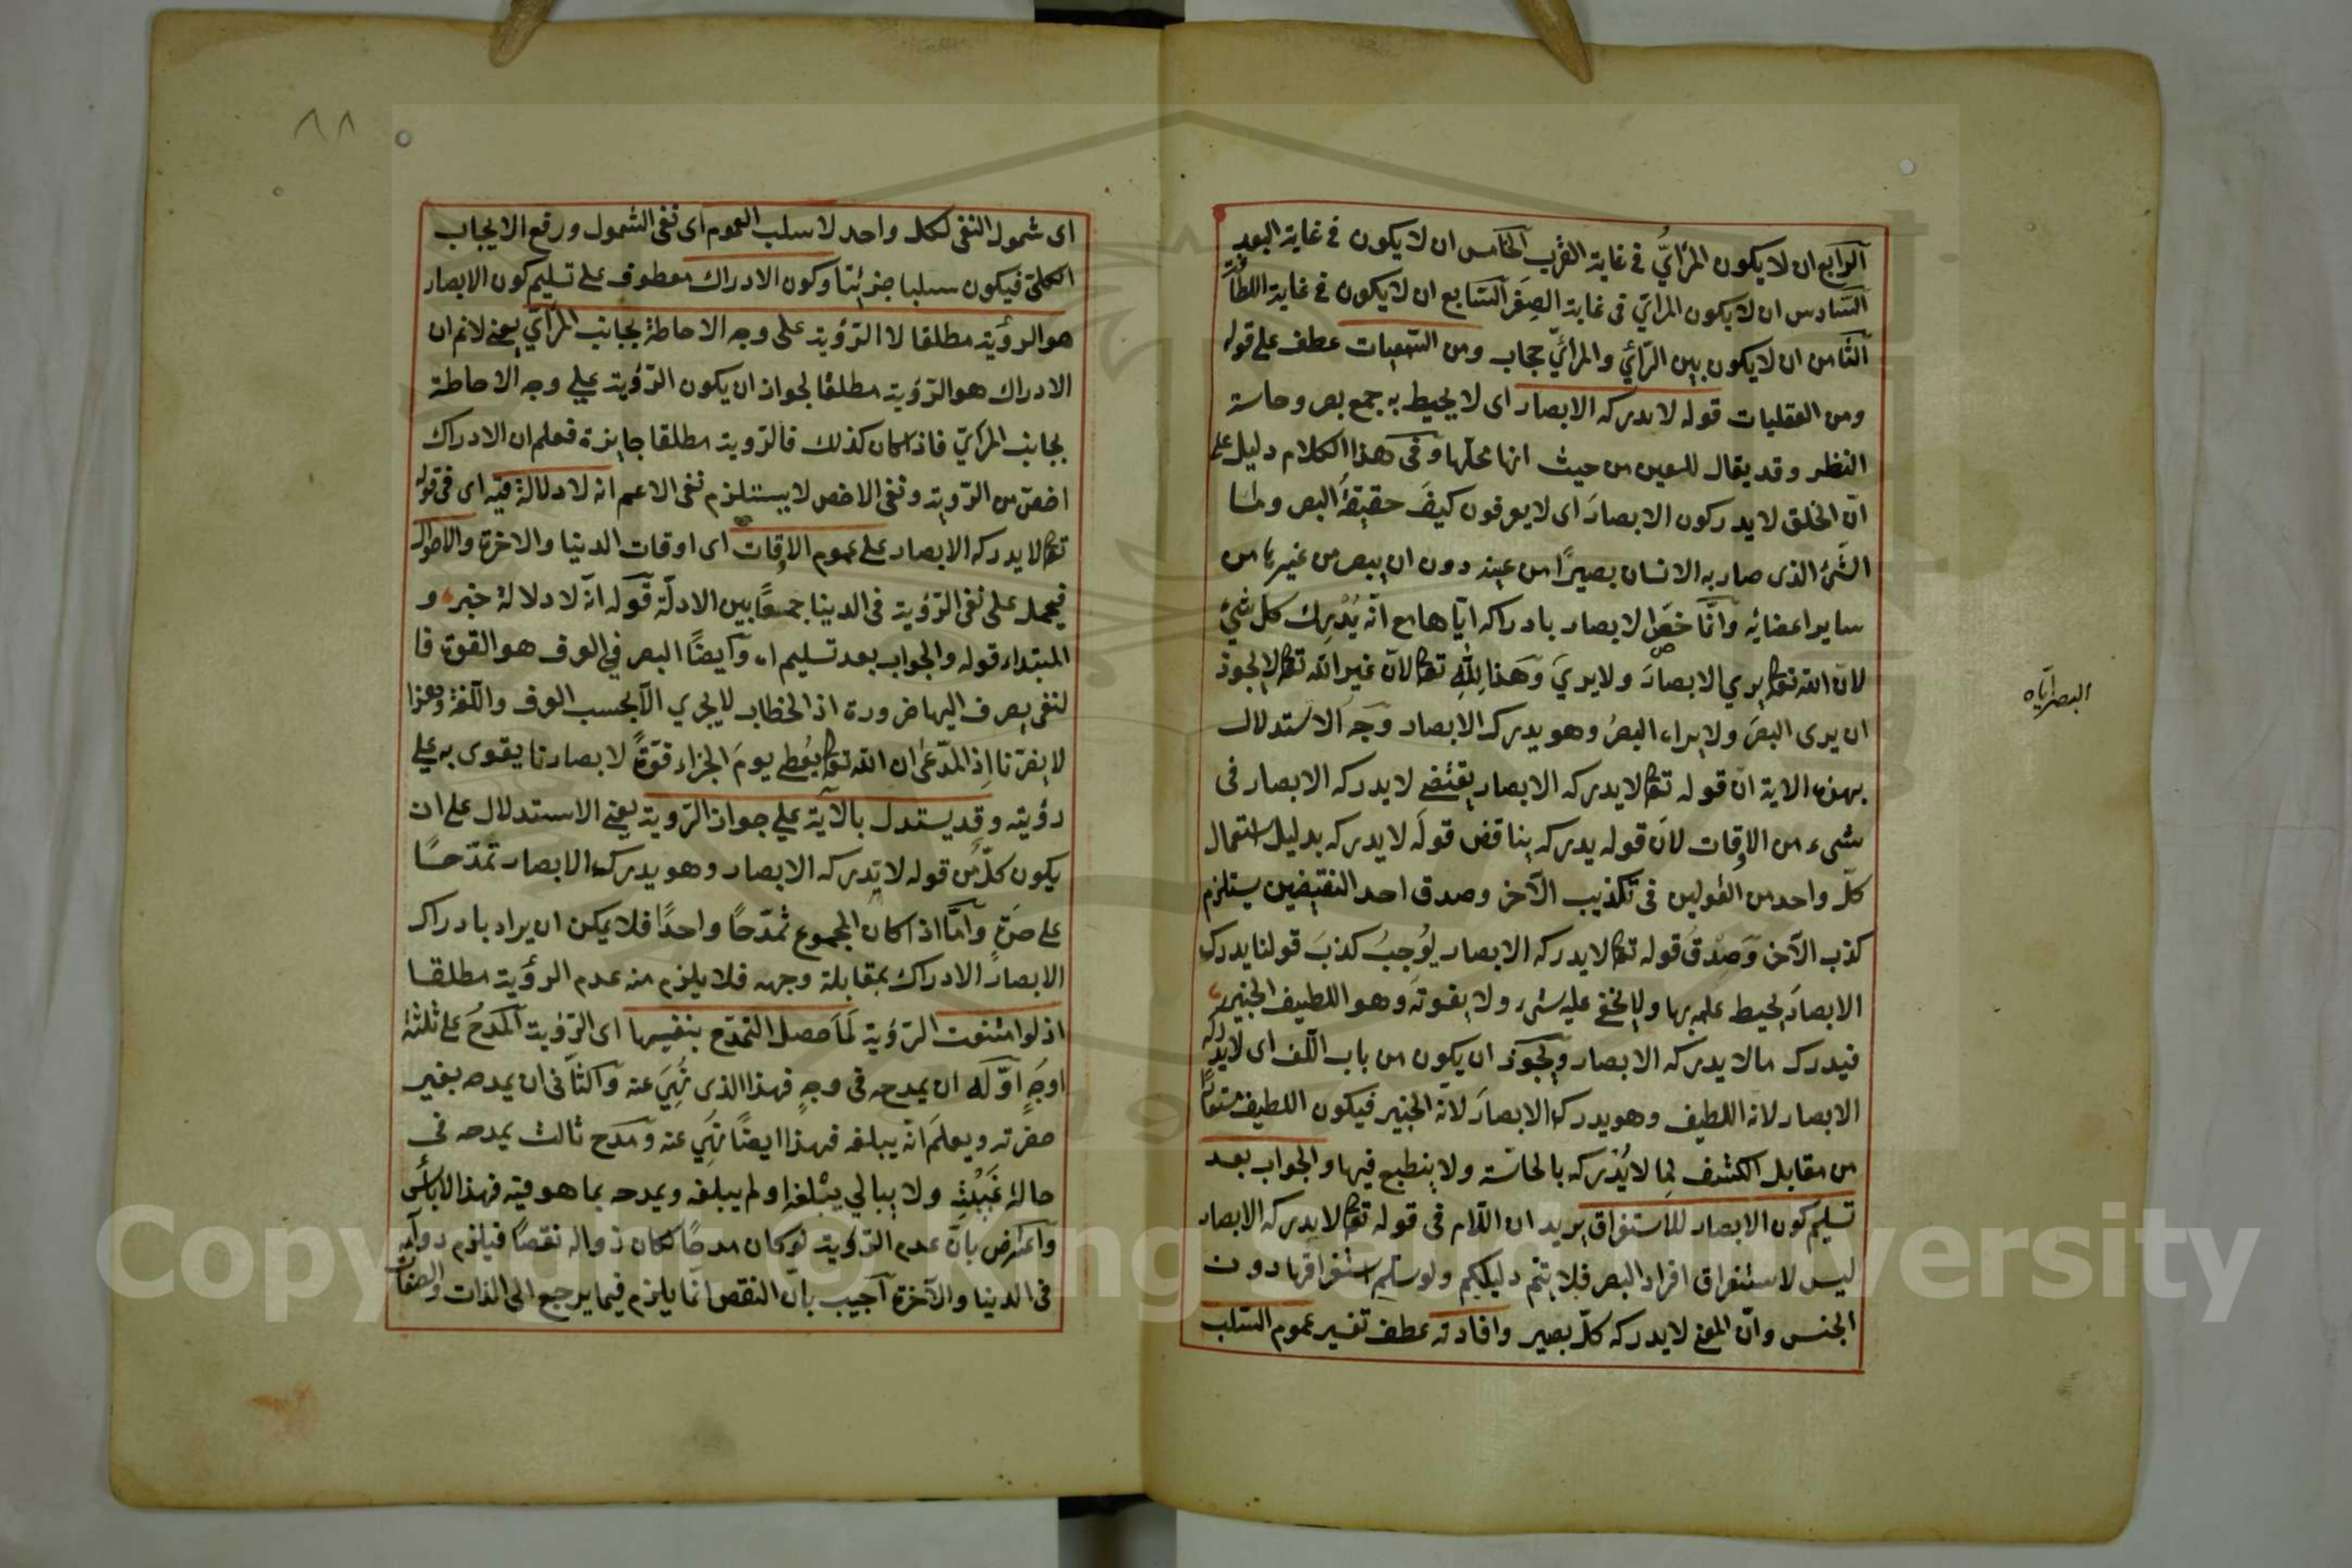 الرابع ان لا يكون المرائي في غاية القرب الخامس ان لا يكون في غاية البعد
السادس ان لا يكون المرائي في غاية الصغر السابع ان لا يكون في غاية اللطافة
الثامن ان لا يكون بين الرائي والمرائي حجاب ومن السمعيات عطف على قوله
ومن العقليات قوله لا يدركه الابصار اى لا يحيط به جمع بصر وحاسة
النظر وقد يقال للعين من حيث انها محلها وفى هذا الكلام دليل على
ان الخلق لا يدركون الابصار اى لا يعرفون كيف حقيقة البصر وما
الشئ الذى صار به الانسان بصيرا من عينه دون ان يبصر من غيرها من
ساير اعضائه وانما خص الابصار بادراكه اياها مع انه يدرك كل شئ
لان الله تعالى يرى الابصار ولا يرى وهذا لله تعالى لان غير الله تعالى لا يجوز
البصر اياه
ان يرى البصر ولا يراه البصر وهو يدرك الابصار وجه الاستدلال
بهذه الاية ان قوله تعالى لا يدركه الابصار يقتضى لا يدركه الابصار فى
شىء من الاوقات لان قوله يدركه يناقض قوله لا يدركه بدليل استعمال
كل واحد من القولين فى تكذيب الآخر وصدق احد النقيضين يستلزم
كذب الآخر وصدق قوله تعالى لا يدركه الابصار يوجب كذب قولنا يدركه
الابصار يحيط علمه بها ولا يخفى عليه شىء ولا يفوته وهو اللطيف الخبير
فيدرك ما لا يدركه الابصار ويجوز ان يكون من باب اللف اى لا يدركه
الابصار لانه اللطيف وهو يدرك الابصار لانه الخبير فيكون اللطيف مستعارا
من مقابل الكثيف لما لا يدركه بالحاسة ولا ينطبع فيها والجواب بعد
تسليم كون الابصار للاستغراق يريد ان اللام فى قوله تعالى لا يدركه الابصار
ليس لاستغراق افراد البصر فلا يتم دليلكم ولو سلم استغراقها دون
الجنس وان المعنى لا يدركه كل بصير وافادته عطف تفسير عموم السلب
٨٨
اى شمول النفى لكل واحد لا سلب العموم اى نفى الشمول ورفع الايجاب
الكلى فيكون سلبا جزئيا وكون الادراك معطوف على تسليم كون الابصار
هو الرؤية مطلقا لا الرؤية على وجه الاحاطة بجانب المرائي يعنى لانم ان
الادراك هو الرؤية مطلقا لجواز ان يكون الرؤية على وجه الاحاطة
بجانب المرائي فاذا كان كذلك فالروية مطلقا جايزة فعلم ان الادراك
اخص من الروية ونفى الاخص لا يستلزم نفى الاعم انه لا دلالة فيه اى فى قوله
تعالى لا يدركه الابصار على عموم الاوقات اى اوقات الدنيا والاخرة والاحوال
فيحمل على نفى الرؤية فى الدنيا جمعا بين الادلة قوله انه لا دلالة خبره و
المبتداء قوله والجواب بعد تسليم اه وايضا البصر فى العرف هو القوة فا
لنفى يصرف اليها ضرورة اذ الخطاب لا يجري الا بحسب العرف واللغة وهذا
لا يضرنا اذ المدعى ان الله تعالى يعطى يوم الجزاء قوة لابصارنا يقوى به على
رؤيته وقد يستدل بالآية على جواز الروية يعنى الاستدلال على ان
يكون كل من قوله لا يدركه الابصار وهو يدرك الابصار تمدحا
على حدة واما اذا كان المجموع تمدحا واحدا فلا يمكن ان يراد بادراك
الابصار الادراك بمقابلة وجهه فلا يلزم منه عدم الرؤية مطلقا
اذ لو امتنعت الرؤية لما حصل التمدح بنفيها اى الرؤية المدح على ثلثة
اوجه اوله ان يمدحه فى وجه فهذا الذى نهى عنه والثانى ان يمدحه بغير
حضرته ويعلم انه يبلغه فهذا ايضا نهى عنه ومدح ثالث يمدحه فى
حالة غيبته ولا يبالى يبلغه او لم يبلغه ويمدحه بما هو فيه فهذا لا بأس
واعترض بان عدم الرؤية لو كان مدحا لكان زواله نقصا فيلزم دوامه
فى الدنيا والآخرة اجيب بان النقص انما يلزم فيما يرجع الى الذات والصفات
Copyright © King Saud University